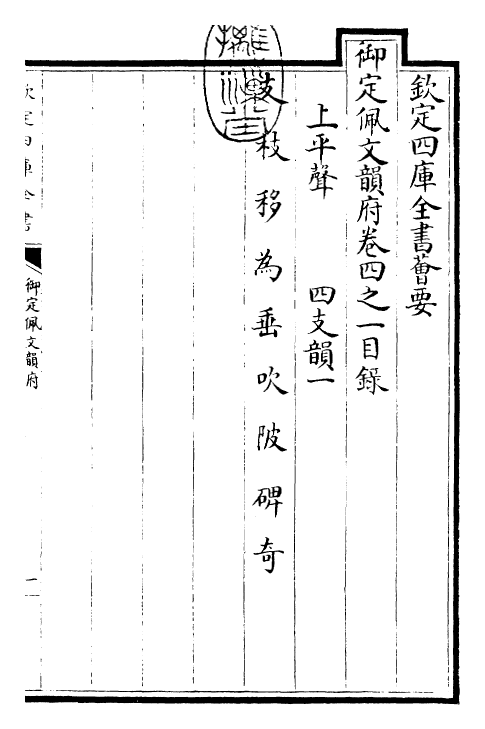 欽定四庫全書薈要
御定佩文韻府卷四之一目錄
上平聲 四支韻一
支 枝 移 為 垂 吹 陂 碑 奇
御定佩文韻府
一